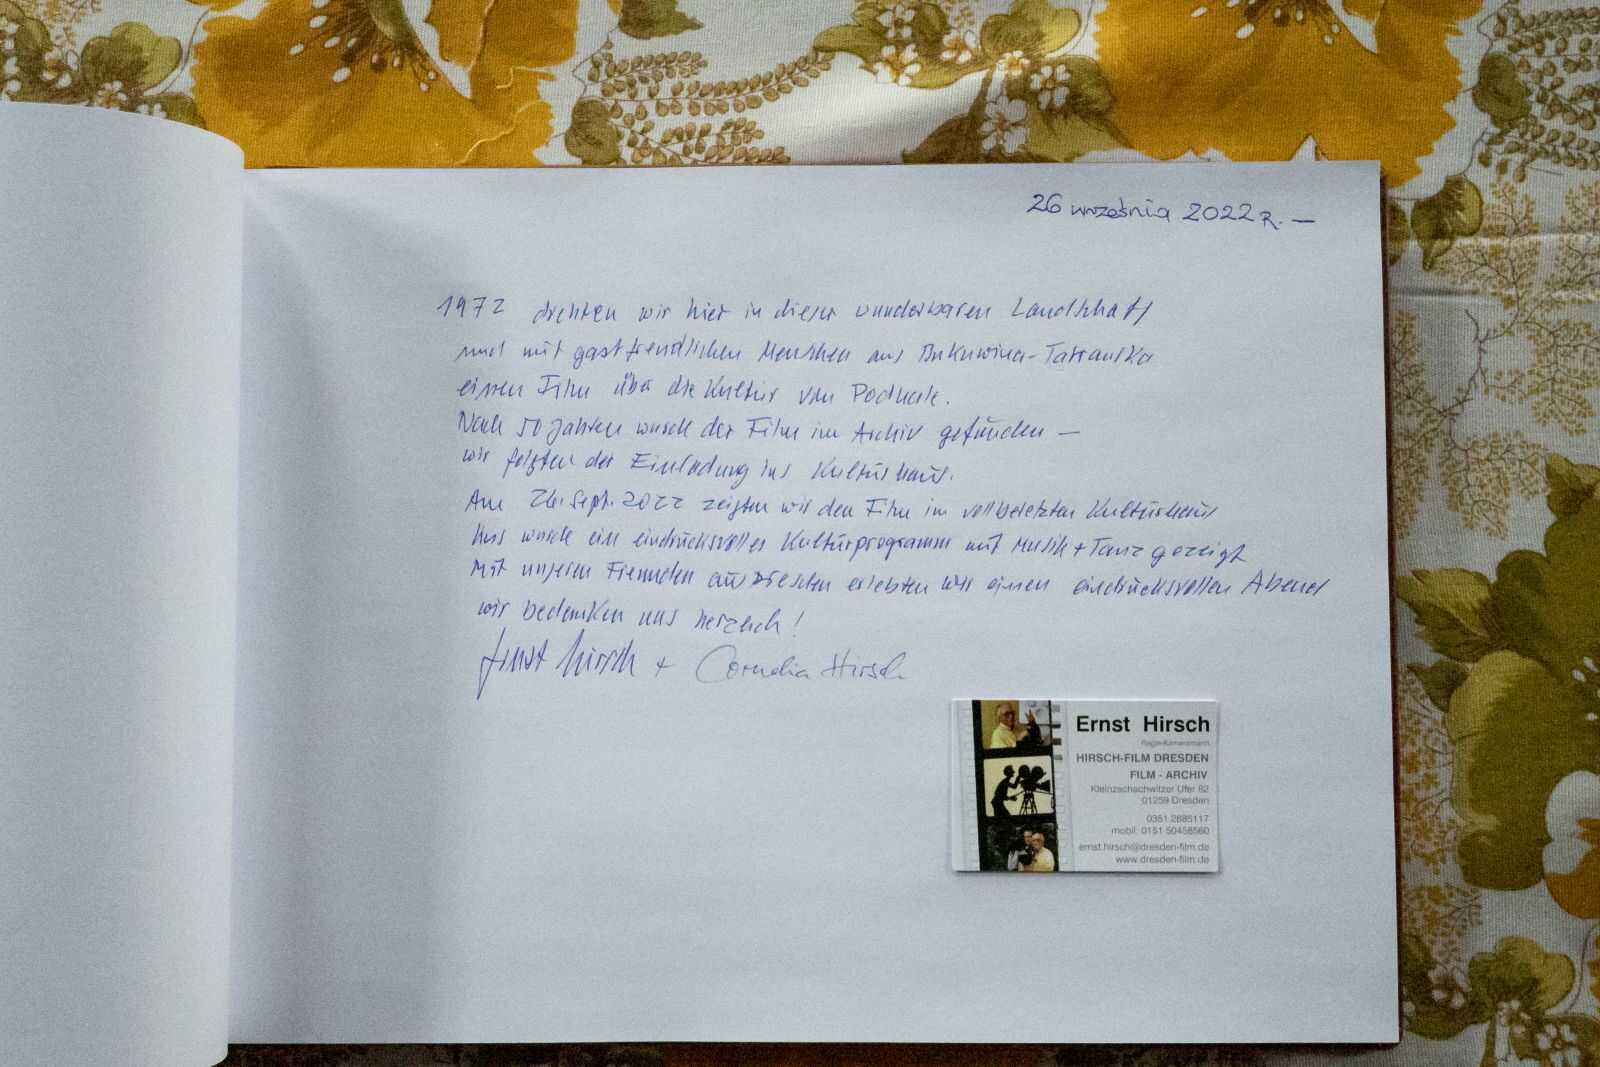 26 września 2022 R. —
1972 drehten wir hier in dieser wunderbaren Landschaft
und mit gastfreundlichen Menschen aus Bukowina-Tatranska
einen Film über die Kultur von Podhale.
Nach 50 Jahren wurde der Film im Archiv gefunden —
wir folgten der Einladung ins Kulturhaus.
Am 26. Sept. 2022 zeigten wir den Film im vollbesetzten Kulturhaus
Uns wurde ein eindrucksvolles Kulturprogramm mit Musik + Tanz gezeigt
Mit unseren Freunden aus Dresden erlebten wir einen eindrucksvollen Abend
wir bedanken uns herzlich!
Ernst Hirsch + Cornelia Hirsch
Ernst Hirsch
Regie-Kameramann
HIRSCH-FILM DRESDEN
FILM - ARCHIV
Kleinzschachwitzer Ufer 62
01259 Dresden
0351 2685117
mobil: 0151 50458560
ernst.hirsch@dresden-film.de
www.dresden-film.de